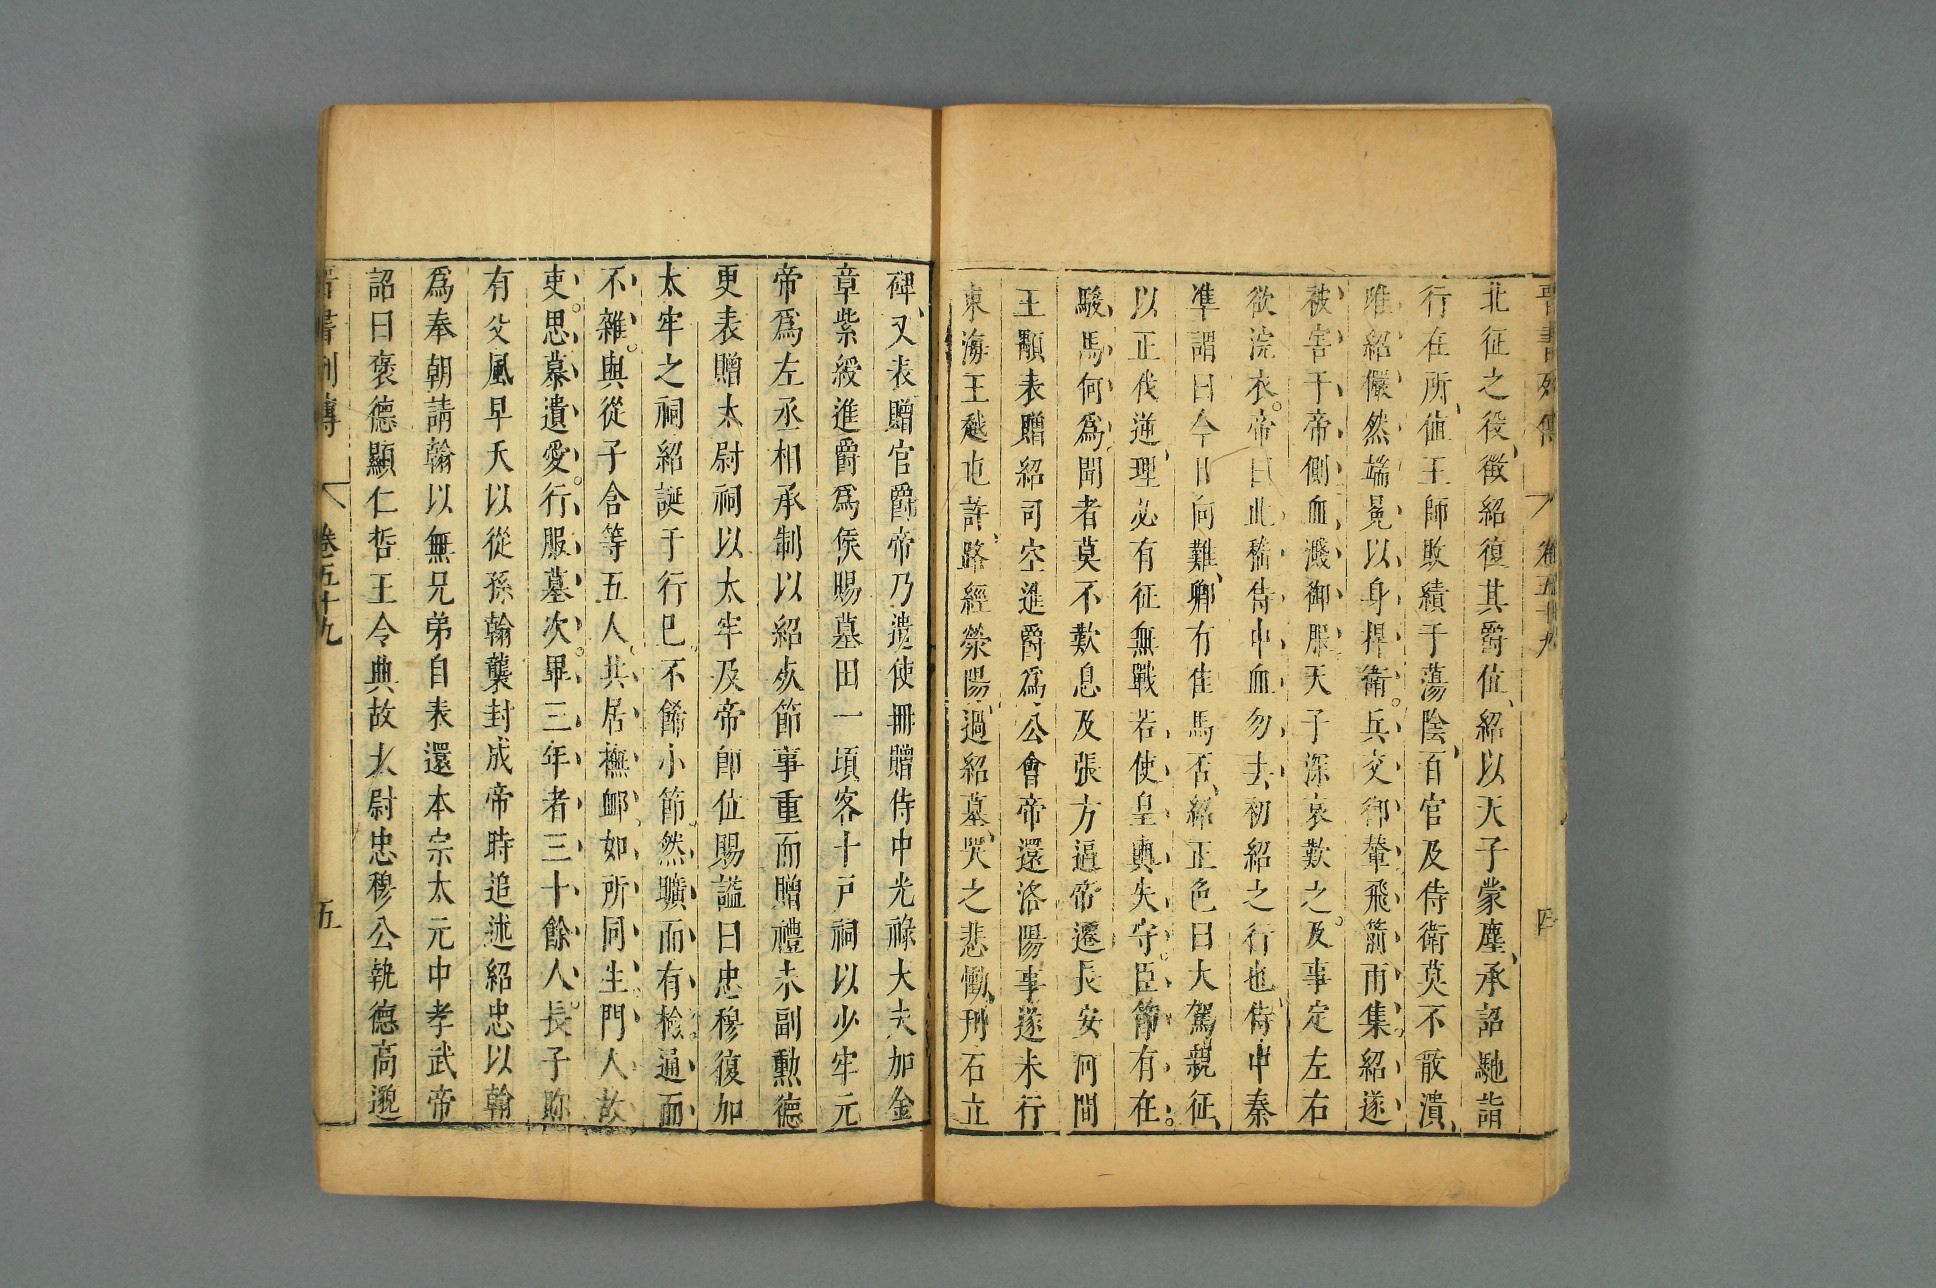 晉書列傳 卷五十九 四
北征之役徵紹復其爵位紹以天子蒙塵承詔馳詣
行在所値王師敗績于蕩陰百官及侍衛莫不散潰
唯紹儼然端冕以身捍衛兵交御輦飛箭雨集紹遂
被害于帝側血濺御服天子深哀歎之及事定左右
欲浣衣帝曰此嵇侍中血勿去初紹之行也侍中秦
準謂曰今日向難卿有佳馬否紹正色曰大駕親征
以正伐逆理必有征無戰若使皇輿失守臣節有在
駿馬何爲聞者莫不歎息及張方逼帝遷長安河間
王顒表贈紹司空進爵爲公會帝還洛陽事遂未行
東海王越屯許路經滎陽過紹墓哭之悲慟刋石立
碑又表贈官爵帝乃遣使冊贈侍中光祿大夫加金
章紫綬進爵爲侯賜墓田一頃客十戸祠以少牢元
帝爲左丞相承制以紹死節事重而贈禮未副勳德
更表贈太尉祠以太牢及帝卽位賜謚曰忠穆復加
太牢之祠紹誕于行已不飾小節然曠而有檢通而
不雜與從子含等五人共居撫䘏如所同生門人故
吏思慕遺愛行服墓次畢三年者三十餘人長子眕
有父風早夭以從孫翰襲封成帝時追述紹忠以翰
爲奉朝請翰以無兄弟自表還本宗太元中孝武帝
詔曰褒德顯仁哲王令典故太尉忠穆公執德高邈
晉書列傳 卷五十九 五